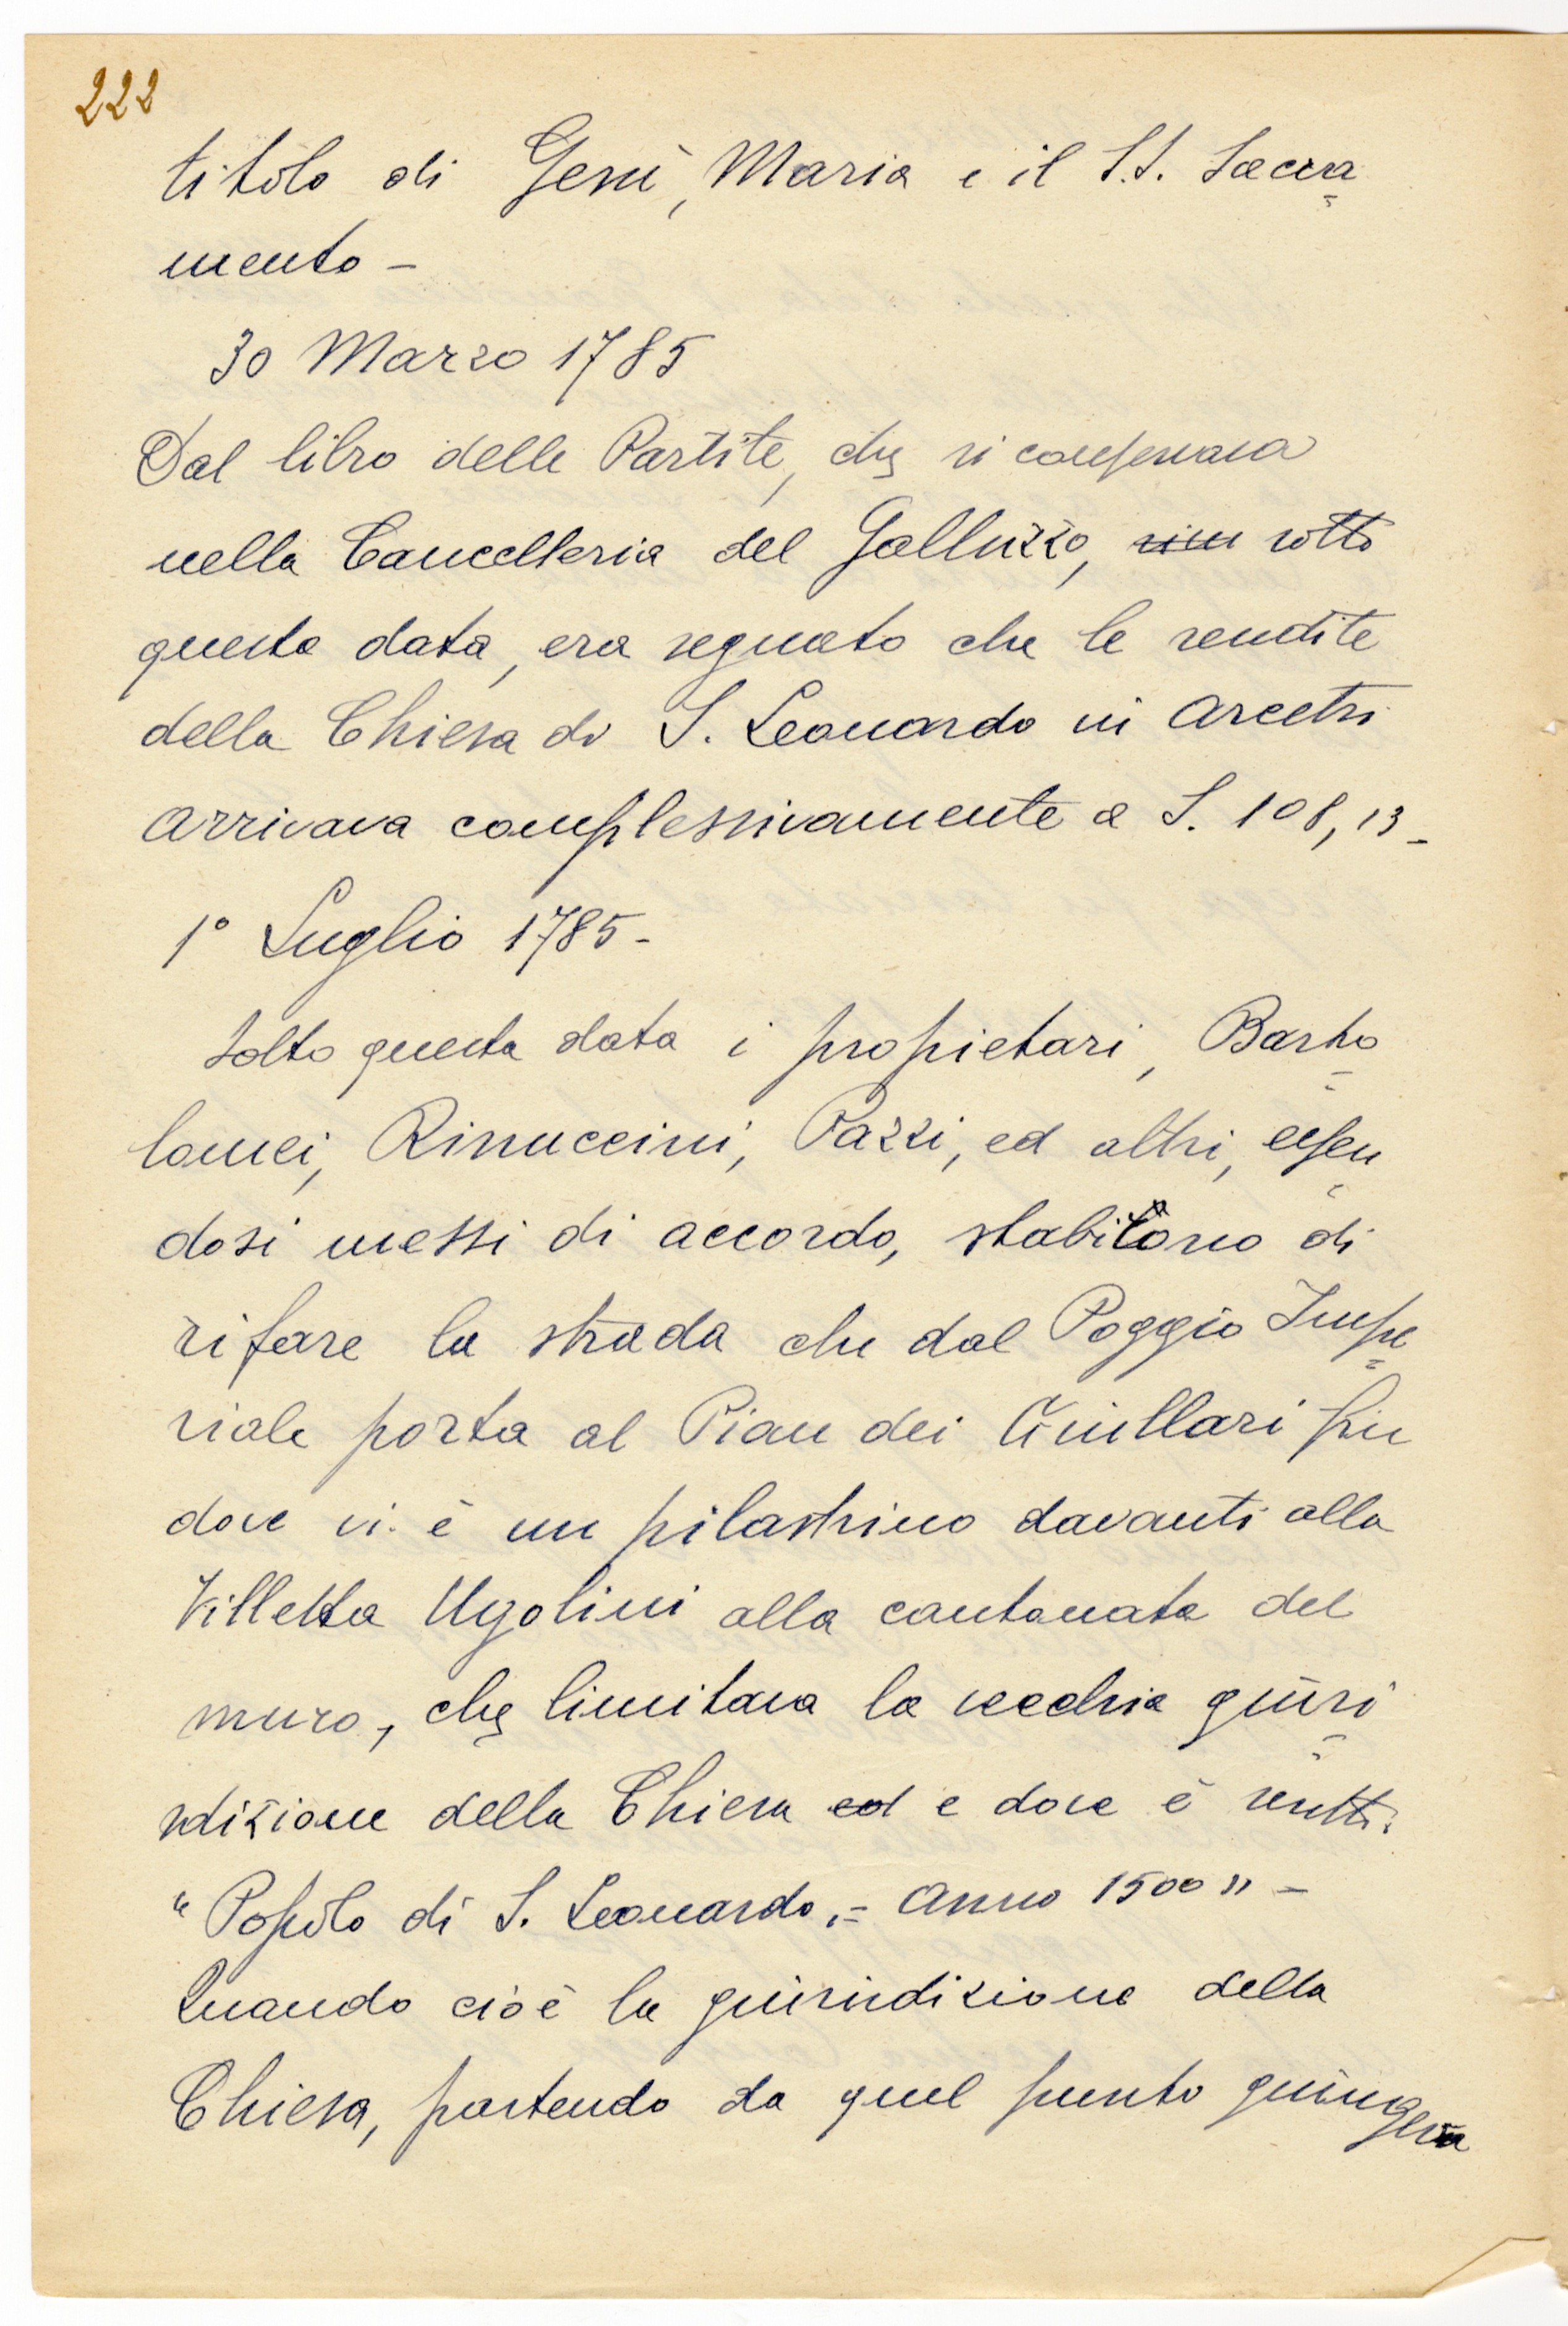 222
titolo di Gesù, Maria e il S.S. Sacra
mento -
30 Marzo 1785
Dal libro delle Partite, che si conservava
nella Cancelleria del Galluzzo, sotto
questa data, era segnato che le rendite
della Chiesa di S. Leonardo in Arcetri
arrivava complessivamente a S. 108, 13 -
1° Luglio 1785 -
Sotto questa data i propietari, Barto
lomei, Rinuccini, Pazzi, ed altri, essen
dosi messi di accordo, stabilirono di
rifare la strada che dal Poggio Impe
riale porta al Pian dei Giullari fin
dove vi è un pilastrino davanti alla
Villetta Ugolini alla cantonata del
muro, che limitava la vecchia giuri
sdizione della Chiesa ed e dove è scritto:
"Popolo di S. Leonardo, = Anno 1500" -
Quando cioè la giurisdizione della
Chiesa, partendo da quel punto giungeva